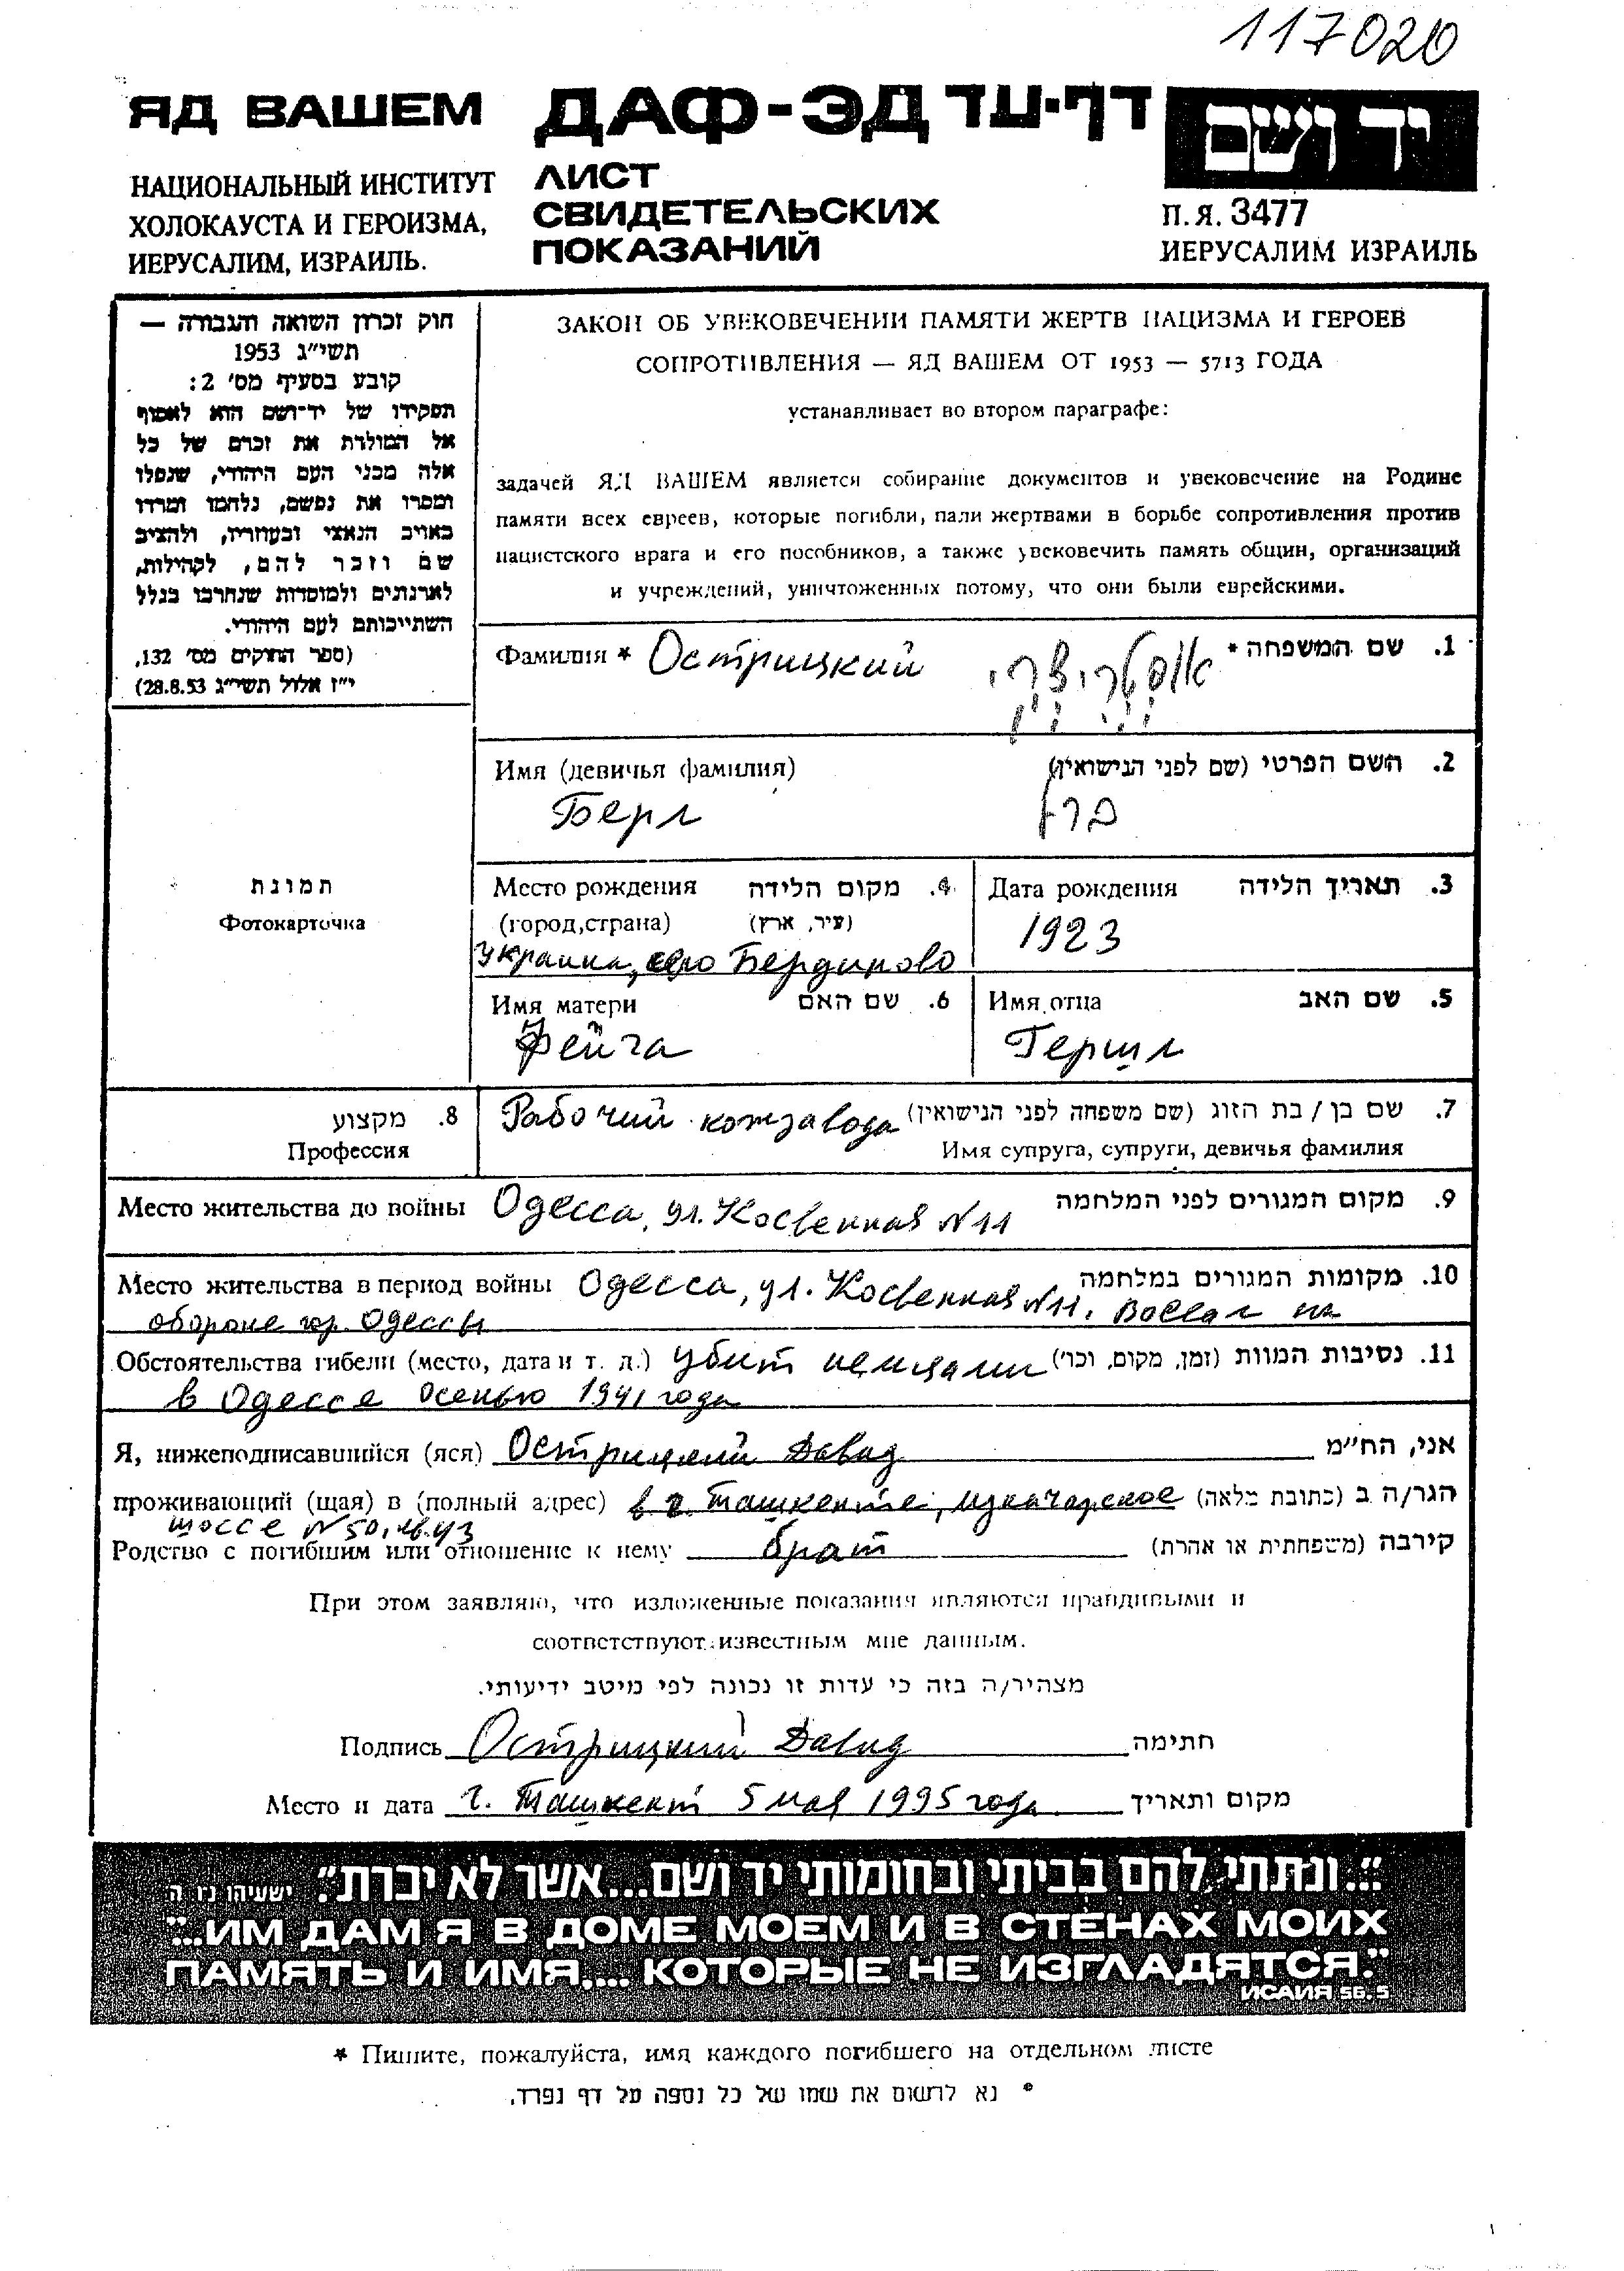 117020
ЯД ВАШЕМ ДАФ-ЭД דף-עד יד ושם
НАЦИОНАЛЬНЫЙ ИНСТИТУТ
ХОЛОКАУСТА И ГЕРОИЗМА,
ИЕРУСАЛИМ, ИЗРАИЛЬ.
ЛИСТ
СВИДЕТЕЛЬСКИХ
ПОКАЗАНИЙ
П.Я. 3477
ИЕРУСАЛИМ ИЗРАИЛЬ
חוק זכרון השואה והגבורה —
תשי״ג 1953
קובע בסעיף מס׳ 2:
תפקידו של יד־ושם הוא לאסוף
אל המולדת את זכרם של כל
אלה מבני העם היהודי, שנפלו
ומסרו את נפשם, נלחמו ומרדו
באויב הנאצי ובעוזריו, ולהציב
שם וזכר להם, לקהילות,
לארגונים ולמוסדות שנחרבו בגלל
השתייכותם לעם היהודי.
(ספר החוקים מס׳ 132,
י״ז אלול תשי״ג 28.8.53)
ЗАКОН ОБ УВЕКОВЕЧЕНИИ ПАМЯТИ ЖЕРТВ НАЦИЗМА И ГЕРОЕВ
СОПРОТИВЛЕНИЯ — ЯД ВАШЕМ ОТ 1953 — 5713 ГОДА
устанавливает во втором параграфе:
задачей ЯД ВАШЕМ является собирание документов и увековечение на Родине
памяти всех евреев, которые погибли, пали жертвами в борьбе сопротивления против
нацистского врага и его пособников, а также увековечить память общин, организаций
и учреждений, уничтоженных потому, что они были еврейскими.
Фамилия * Острицкий 1. שם המשפחה *
Имя (девичья фамилия) 2. השם הפרטי (שם לפני הנישואין)
Берл ברל
תמונת
Фотокарточка
Место рождения 4. מקום הלידה
(город,страна) (עיר, ארץ)
Украина, село Бердиново
Дата рождения 3. תאריך הלידה
1923
Имя матери 6. שם האם
Фейга
Имя отца 5. שם האב
Гершл
8. מקצוע
Профессия
Рабочий кожзавода 7. שם בן / בת הזוג (שם משפחה לפני הנישואין)
Имя супруга, супруги, девичья фамилия
Место жительства до войны Одесса, ул. Косвенная N 11 9. מקום המגורים לפני המלחמה
Место жительства в период войны Одесса, ул. Косвенная N 11. Воевал на 10. מקומות המגורים במלחמה
обороне гор. Одессы
Обстоятельства гибели (место, дата и т. д.) убит немцами 11. נסיבות המוות (זמן, מקום, וכו׳)
в Одессе осенью 1941 года
Я, нижеподписавшийся (яся) Острицкий Давид אני, הח״מ
проживающий (щая) в (полный адрес) в г. Ташкенте, הגר/ה ב (כתובת מלאה)
шоссе N 50, кв. 43
Родство с погибшим или отношение к нему брат קירבה (משפחתית או אחרת)
При этом заявляю, что изложенные показания являются правдивыми и
соответствуют известным мне данным.
מצהיר/ה בזה כי עדות זו נכונה לפי מיטב ידיעותי.
Подпись Острицкий Давид חתימה
Место и дата г. Ташкент 5 мая 1995 года מקום ותאריך
״...ונתתי להם בביתי ובחומותי יד ושם...אשר לא יכרת״. ישעיהו נ״ו ה
"...ИМ ДАМ Я В ДОМЕ МОЕМ И В СТЕНАХ МОИХ
ПАМЯТЬ И ИМЯ.... КОТОРЫЕ НЕ ИЗГЛАДЯТСЯ."
ИСАИЯ 56.5
* Пишите, пожалуйста, имя каждого погибшего на отдельном листе
* נא לרשום את שמו של כל נספה על דף נפרד.